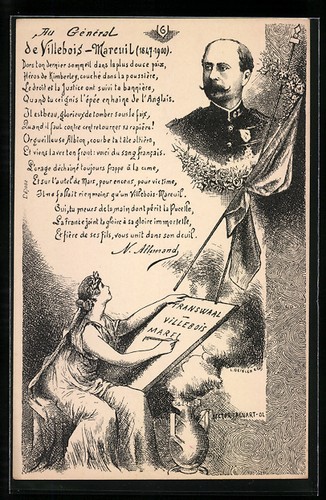 Au Général
G
de Villebois-Mareuil (1847-1900).
Dors ton dernier sommeil dans la plus douce paix,
Héros de Kimberley, couché dans la poussière,
Le droit et la Justice ont suivi ta bannière,
Quand tu ceignis l'épée en haine de l'Anglais.
Il est beau, glorieux de tomber sous le faix,
Quand il faut contre cent retourner sa rapière!
Orgueilleuse Albion, courbe ta tête altière,
Et viens laver ton front: voici du sang français.
L'orage déchaîné toujours frappe à la cime,
Et sur l'autel de Mars, pour encens, pour victime,
Il ne fallait rien moins qu'un Villebois-Mareuil.
Oui, tu meurs de la main dont périt la Pucelle,
La France joint ta gloire à sa gloire immortelle,
Et fière de ses fils, vous unit dans son deuil.
N. Allemand
TRANSWAAL
—
VILLEBOIS
MAREL